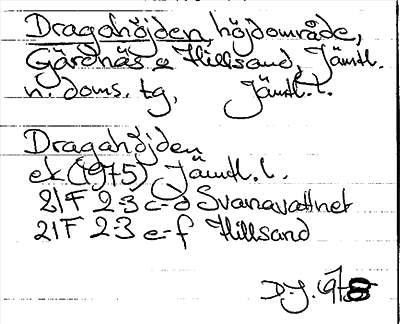 Dragahöjden, höjdområde,
Gärdnäs o Hillsand, Jämtl.
n. doms. tg, Jämtl. l.
Dragahöjden
ek (1975) Jämtl. l.
21F 2-3 c-d Svanavattnet
21F 2-3 e-f Hillsand
D.J.